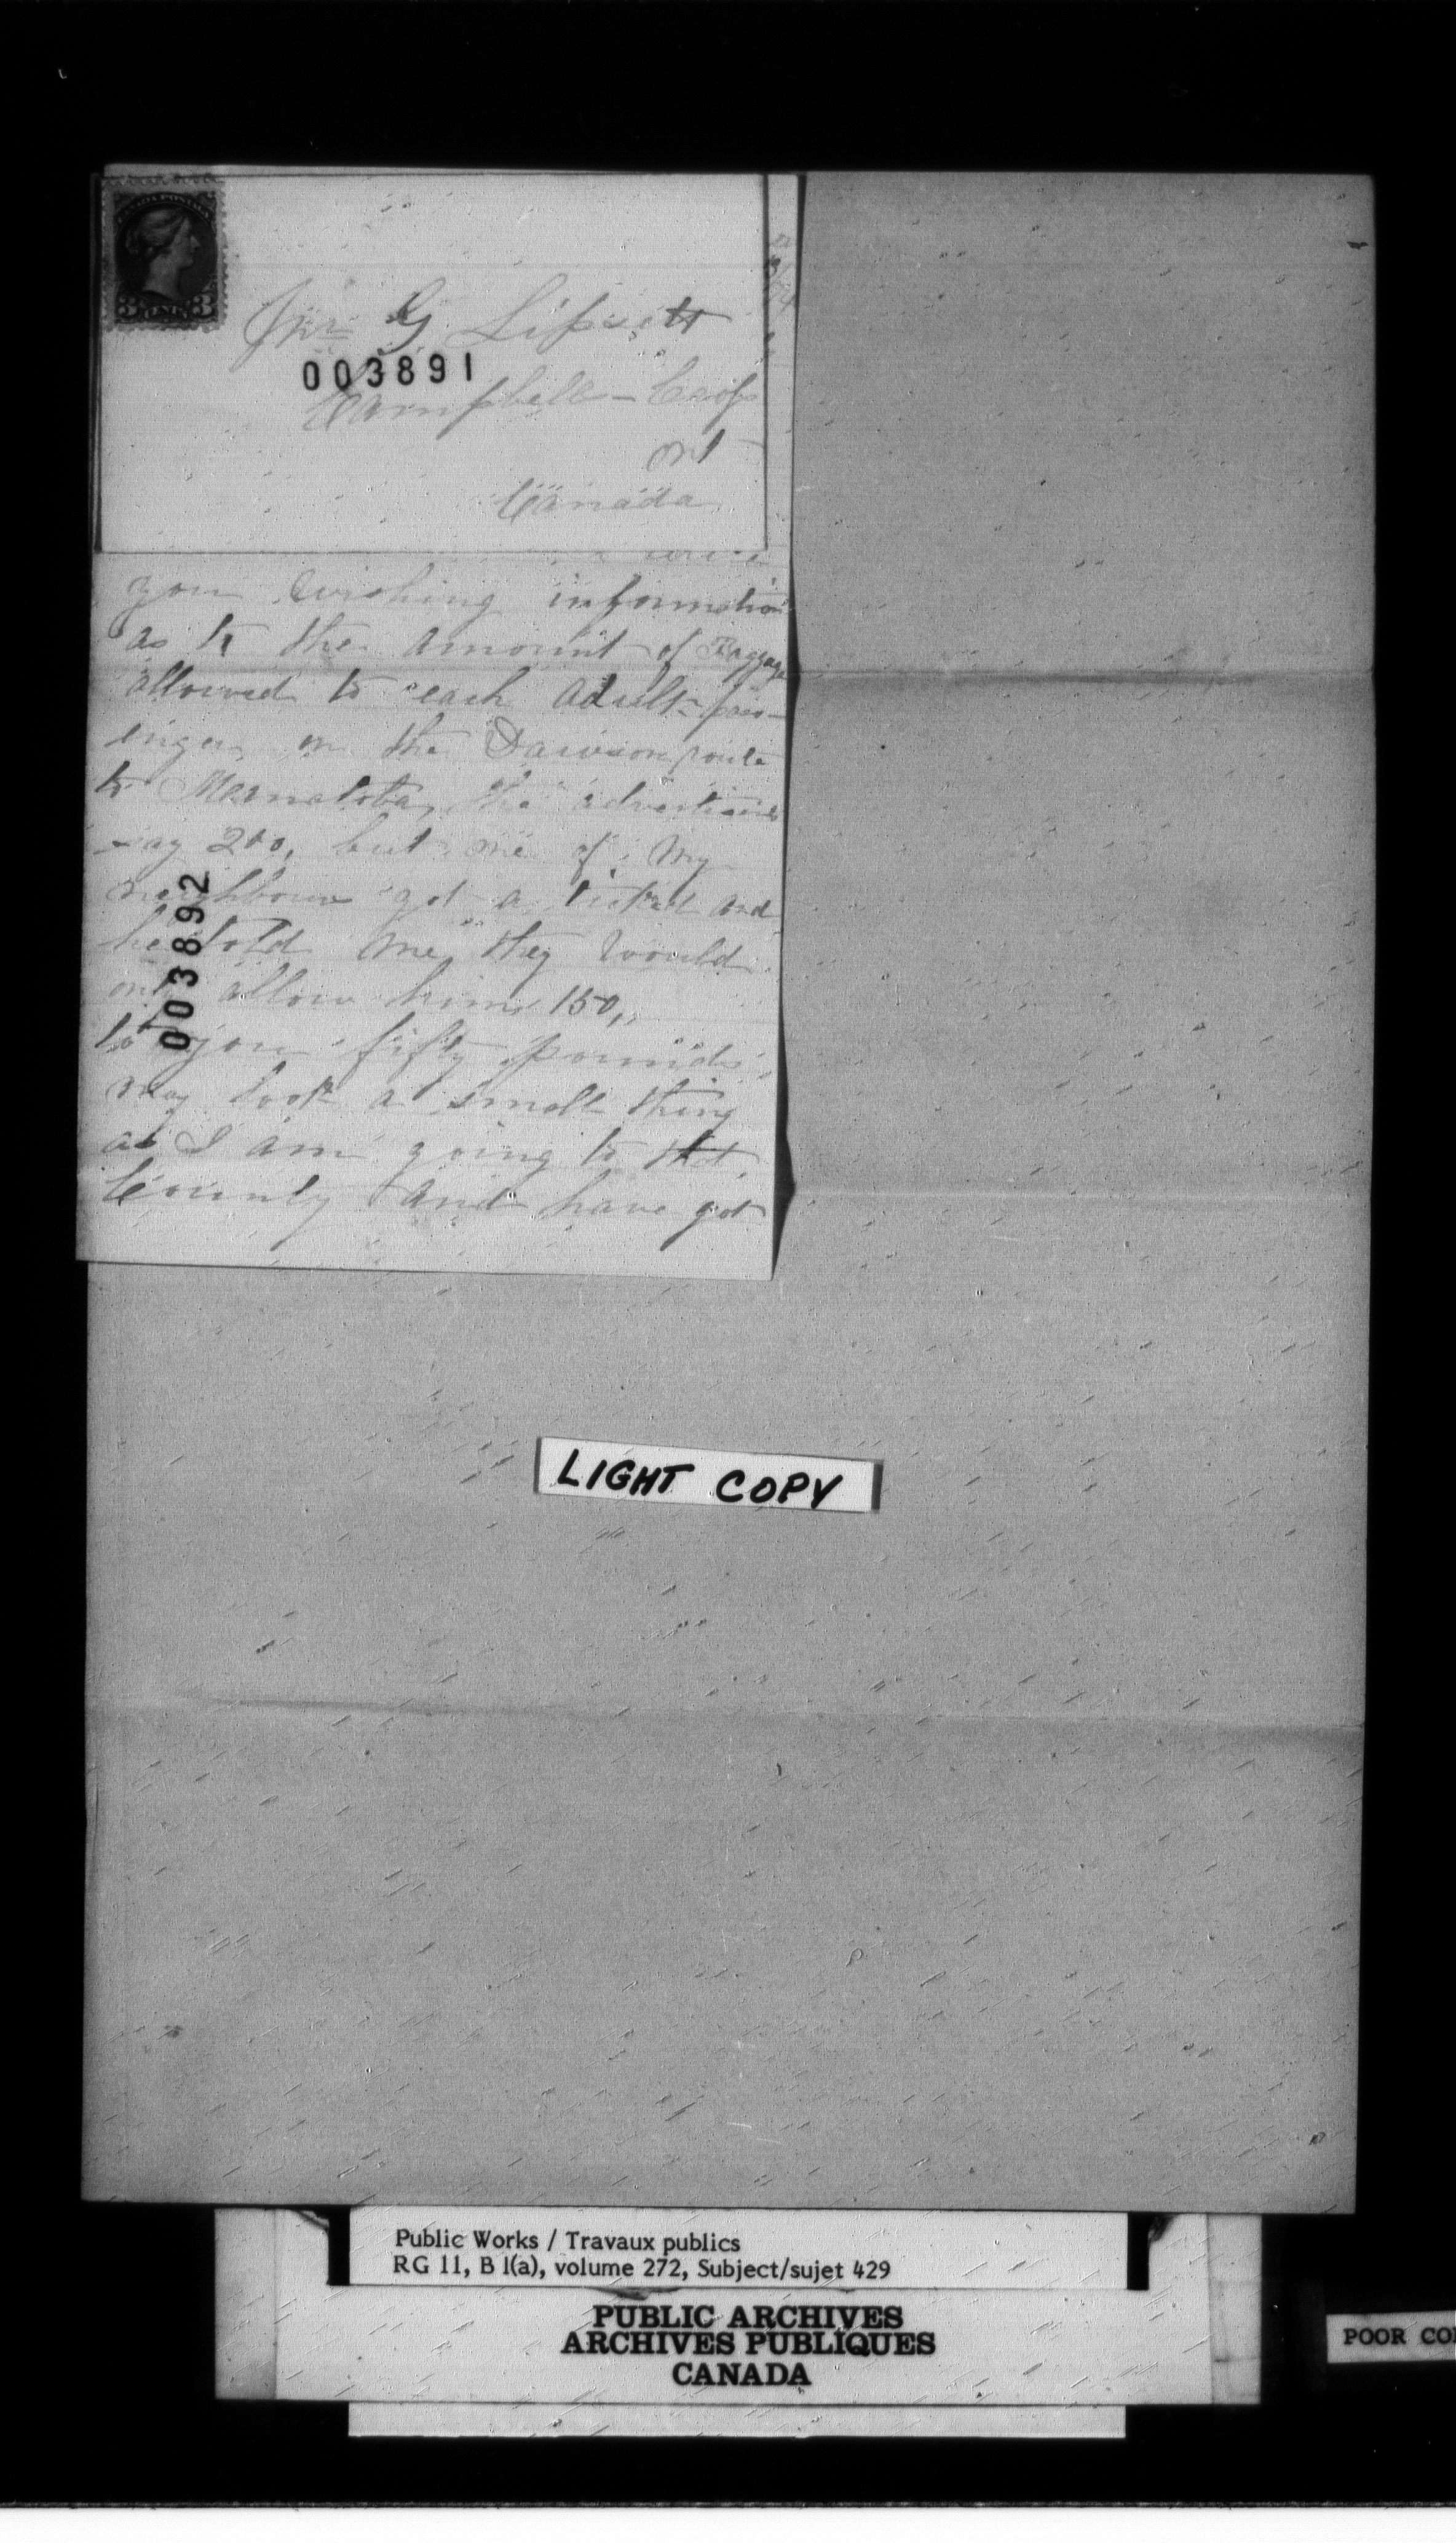 CANADA POSTAGE
3 CENTS 3
G Lipsett
003891
Campbell-Cross
Ont
Canada
you wishing information
as to the amount of Baggage
allowed to each adult pass-
enger on the Dawson route
to Mannatoba, the advertisings
say 200, but one of my
neighbours got a ticket and
he told me they would
only allow him 150,
to you fifty pounds
may look a small thing
as I am going to that
County and have got
003892
LIGHT COPY
Public Works / Travaux publics
RG 11, B 1(a), volume 272, Subject/sujet 429
PUBLIC ARCHIVES
ARCHIVES PUBLIQUES
CANADA
POOR CO